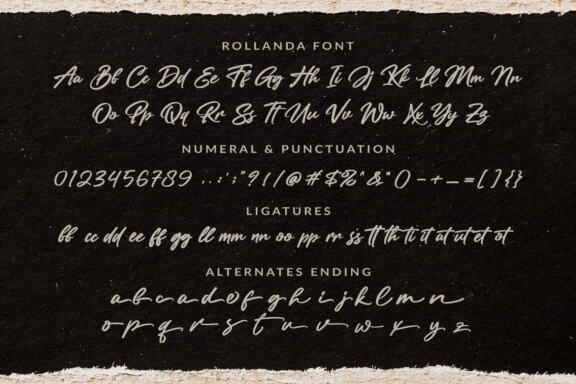 ROLLANDA FONT
Aa Bb Cc Dd Ee Ff Gg Hh Ii Jj Kk Ll Mm Nn
Oo Pp Qq Rr Ss Tt Uu Vv Ww Xx Yy Zz
NUMERAL & PUNCTUATION
0123456789 ..,:;"?!/@#$%^&*()-+_=[]{}
LIGATURES
bb cc dd ee ff gg ll mm nn oo pp rr ss tt th ti it at ut et ot
ALTERNATES ENDING
a b c a d e f g h i j k l m n
o p q r s t u v w x y z